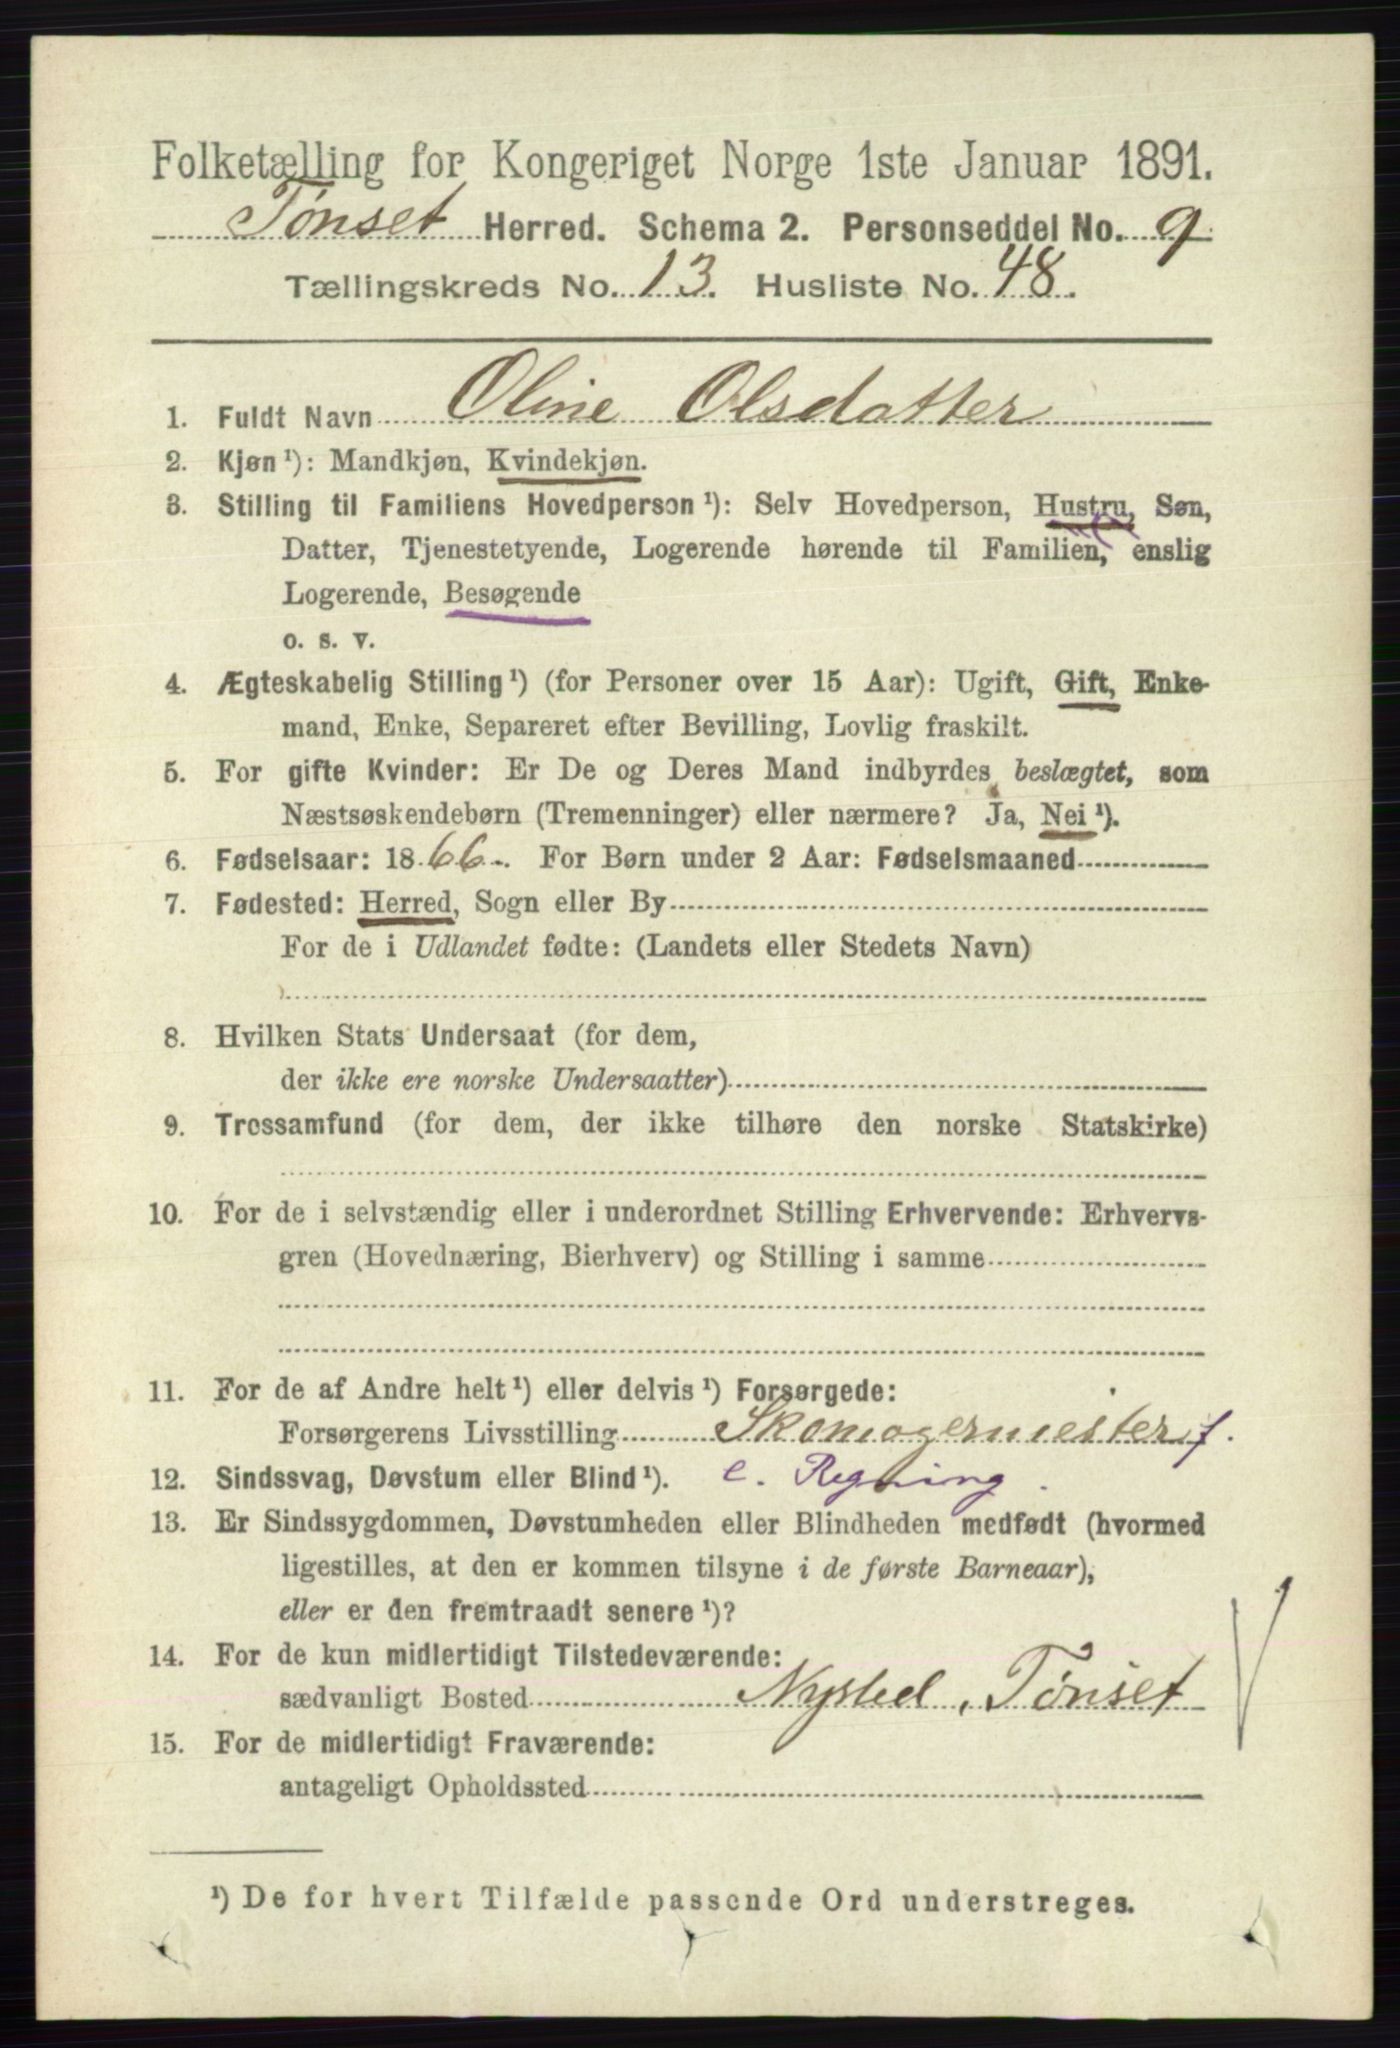 Folketælling for Kongeriget Norge 1ste Januar 1891.
Tønset Herred. Schema 2. Personseddel No. 9
Tællingskreds No. 13. Husliste No. 48.
1. Fuldt Navn Oline Olsdatter
2. Kjøn ¹): Mandkjøn, Kvindekjøn.
3. Stilling til Familiens Hovedperson ¹): Selv Hovedperson, Hustru, Søn,
Datter, Tjenestetyende, Logerende hørende til Familien, enslig
Logerende, Besøgende
o. s. v.
4. Ægteskabelig Stilling ¹) (for Personer over 15 Aar): Ugift, Gift, Enke-
mand, Enke, Separeret efter Bevilling, Lovlig fraskilt.
5. For gifte Kvinder: Er De og Deres Mand indbyrdes beslægtet, som
Næstsøskendebørn (Tremenninger) eller nærmere? Ja, Nei ¹).
6. Fødselsaar: 1866. For Børn under 2 Aar: Fødselsmaaned
7. Fødested: Herred, Sogn eller By
For de i Udlandet fødte: (Landets eller Stedets Navn)
8. Hvilken Stats Undersaat (for dem,
der ikke ere norske Undersaatter)
9. Trossamfund (for dem, der ikke tilhøre den norske Statskirke)
10. For de i selvstændig eller i underordnet Stilling Erhvervende: Erhvervs-
gren (Hovednæring, Bierhverv) og Stilling i samme
11. For de af Andre helt ¹) eller delvis ¹) Forsørgede:
Forsørgerens Livsstilling Skomagermester f.
12. Sindssvag, Døvstum eller Blind ¹). e. Regning.
13. Er Sindssygdommen, Døvstumheden eller Blindheden medfødt (hvormed
ligestilles, at den er kommen tilsyne i de første Barneaar),
eller er den fremtraadt senere ¹)?
14. For de kun midlertidigt Tilstedeværende:
sædvanligt Bosted Nysted, Tønset
15. For de midlertidigt Fraværende:
antageligt Opholdssted
¹) De for hvert Tilfælde passende Ord understreges.